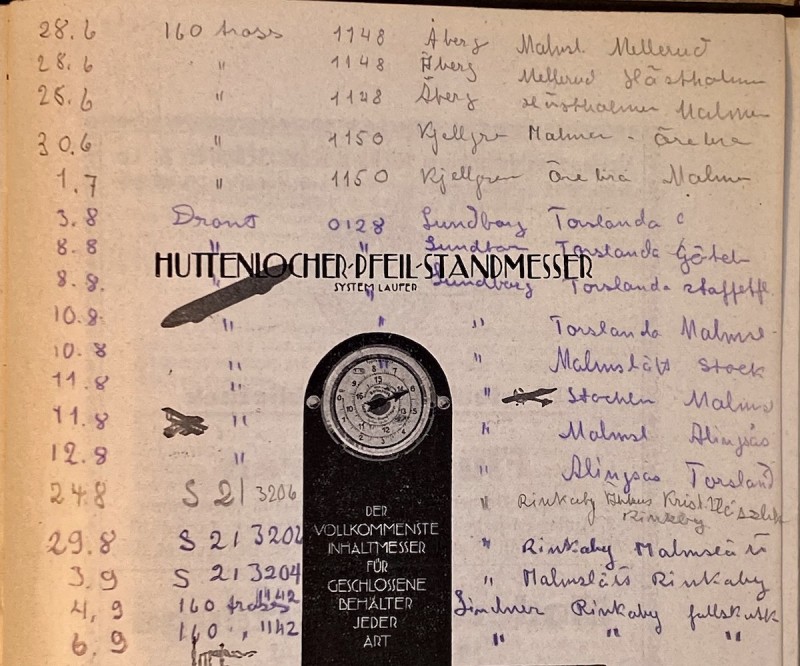 28.6 160 trass 1148 Åberg Malmsl. Mellerud
28.6 " 1148 Åberg Mellerud Hästholmen
28.6 " 1148 Åberg Hästholmen Malmen
30.6 " 1150 Kjellgren Malmen - Örebro
1.7 " 1150 Kjellgren Örebro Malmen
3.8 Dront 0128 Lundborg Torslanda
8.8 " " Lundborg Torslanda Göteb
HUTTENLOCHER-PFEIL-STANDMESSER
SYSTEM LAUFER
8.8. " " Lundborg Torslanda
10.8. " " " Torslanda Malmsl.
10.8 " " " Malmslätt Stock
11.8 " " Malmsl
11.8 " " Malmsl Alingsås
12.8 " " Alingsås Torsland
24.8 S 21 3206 " Rinkaby Krist
Rinkaby
DER
VOLLKOMMENSTE
INHALTMESSER
FÜR
GESCHLOSSENE
BEHÄLTER
JEDER
ART
29.8 S 21 3202 " Rinkaby Malmslätt
3.9 S 21 3204 " Malmslätt Rinkaby
4,9 160 1142 Lindner Rinkaby
6.9 160 " 1142 " " "